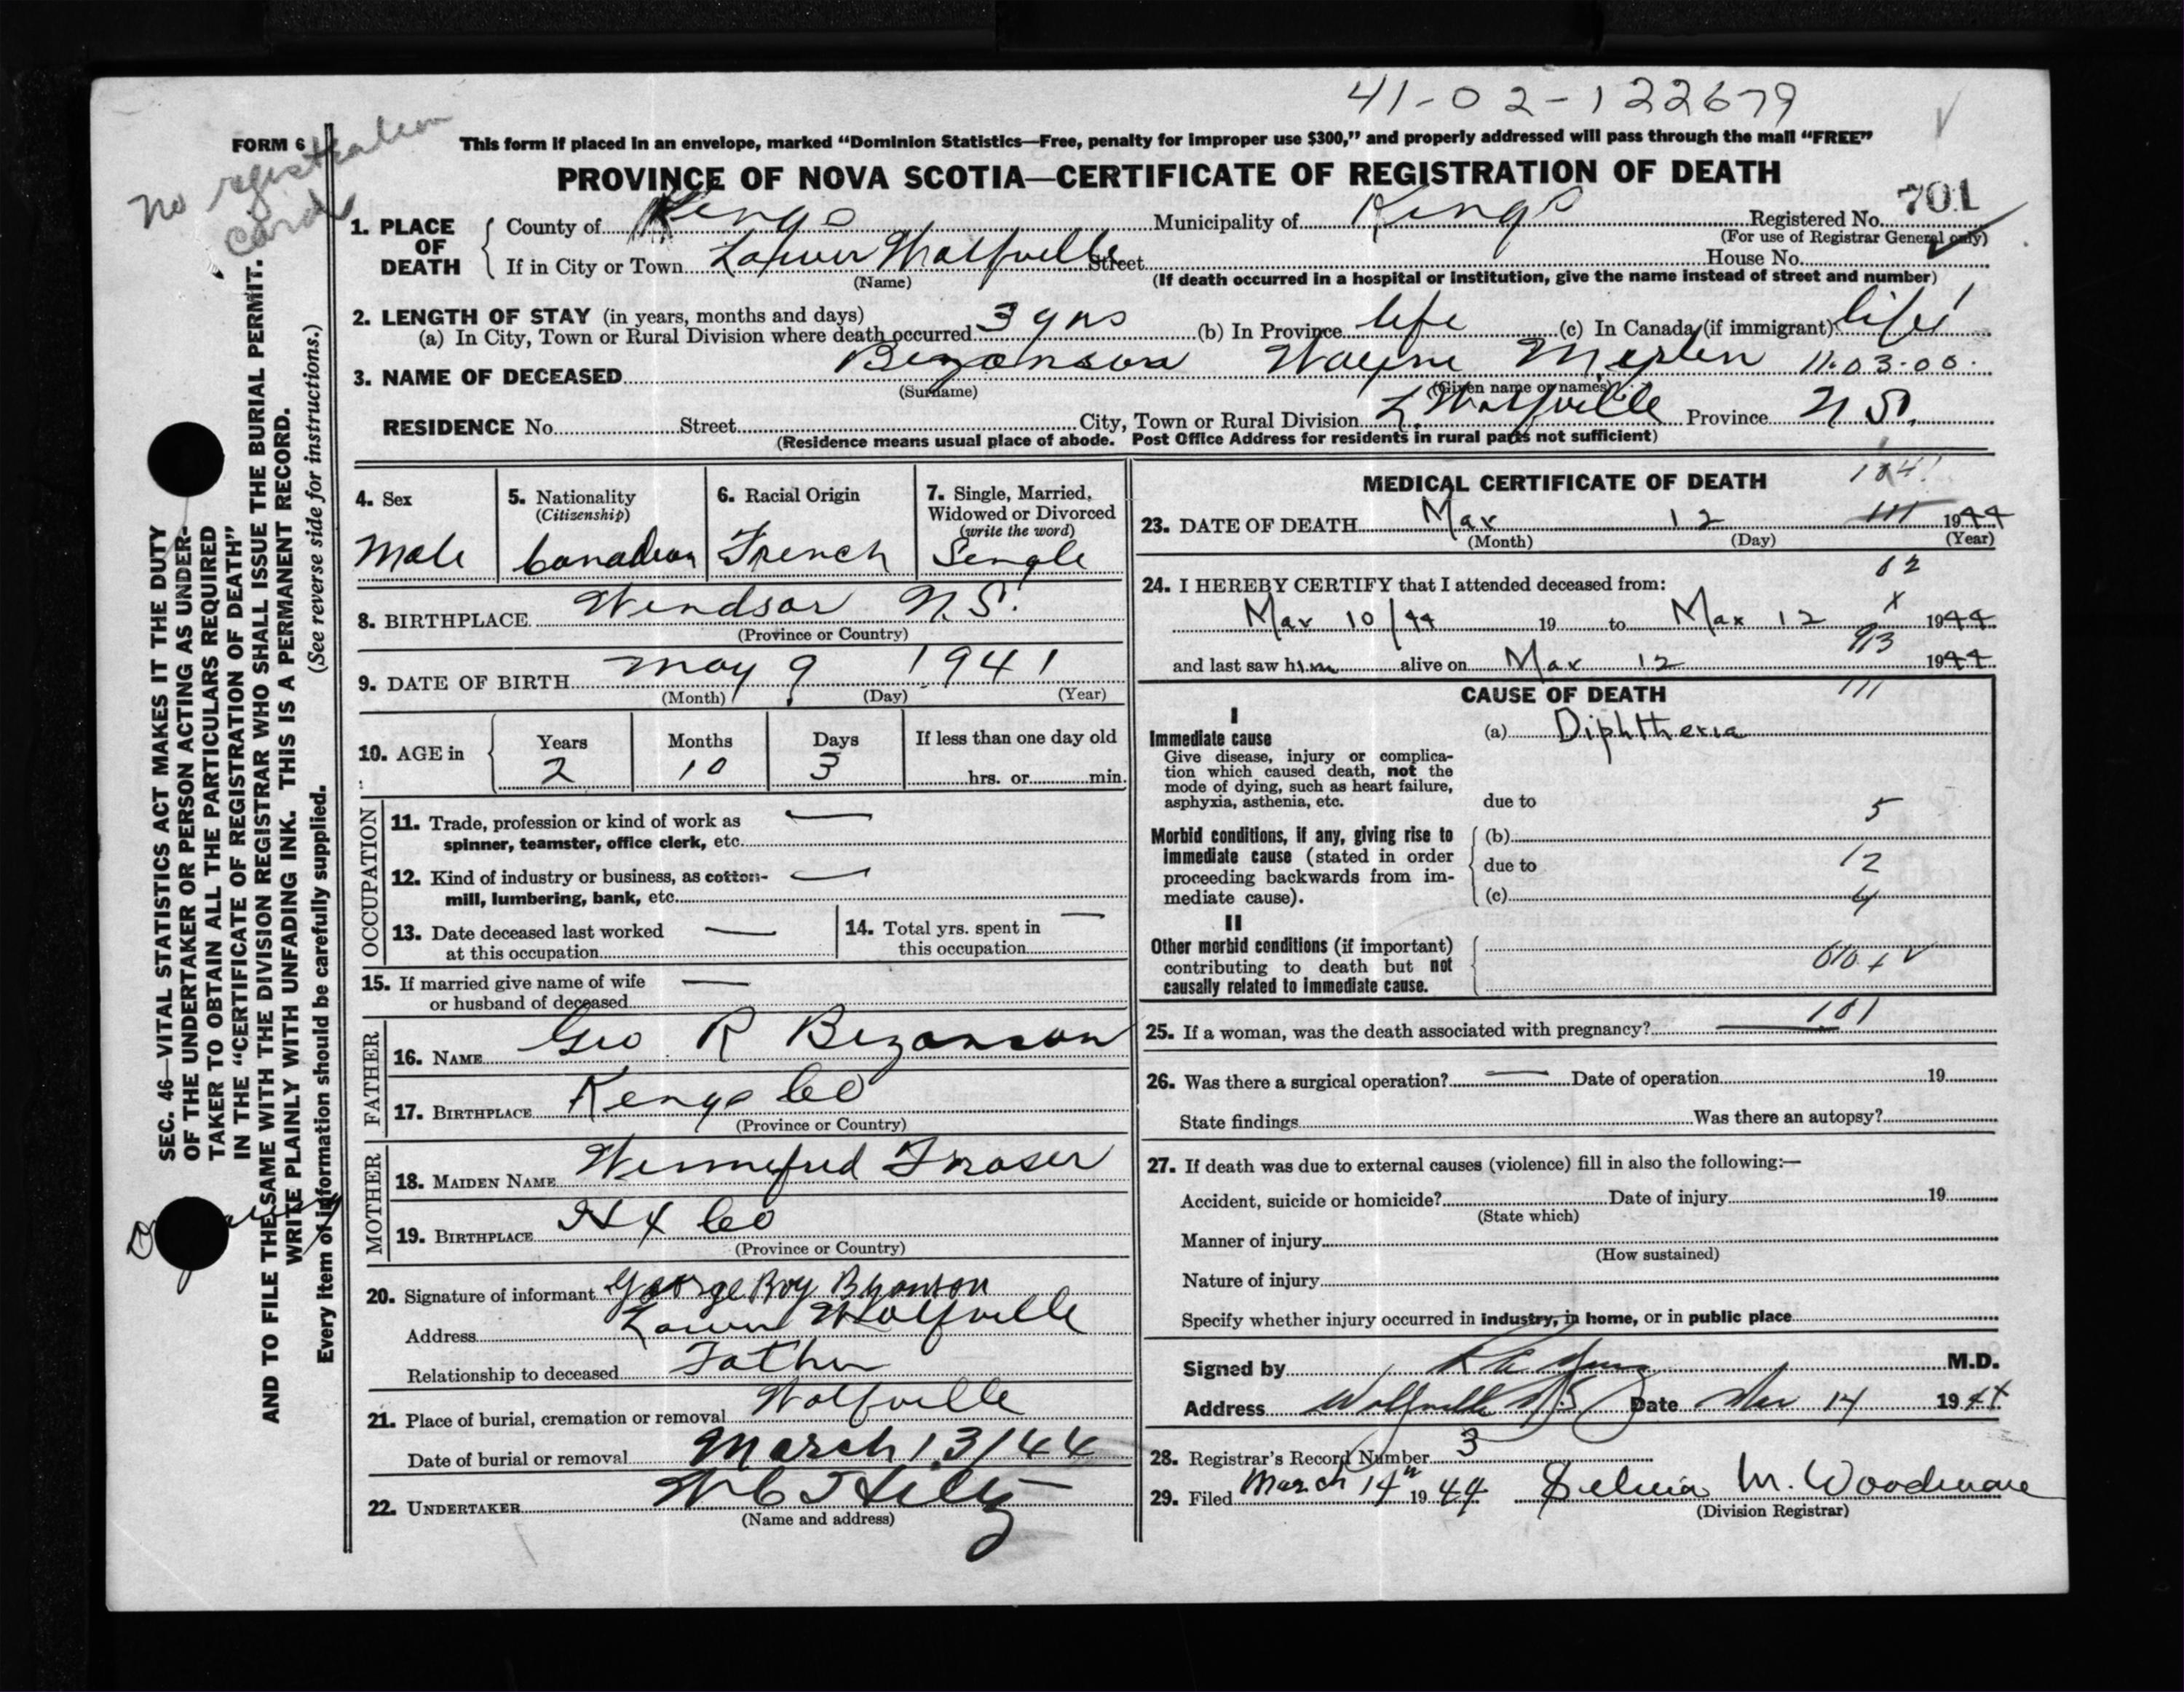 41-02-122679
FORM 6
No registration card
This form if placed in an envelope, marked “Dominion Statistics—Free, penalty for improper use $300,” and properly addressed will pass through the mail “FREE”
PROVINCE OF NOVA SCOTIA—CERTIFICATE OF REGISTRATION OF DEATH
701
1. PLACE OF DEATH County of Kings Municipality of Kings Registered No.
(For use of Registrar General only)
If in City or Town Lower Wolfville Street House No.
(Name) (If death occurred in a hospital or institution, give the name instead of street and number)
2. LENGTH OF STAY (in years, months and days)
(a) In City, Town or Rural Division where death occurred 3 yrs (b) In Province life (c) In Canada (if immigrant) life
3. NAME OF DECEASED Bezanson Wayne Merlen 11.03.00.
(Surname) (Given name or names)
RESIDENCE No. Street City, Town or Rural Division L. Wolfville Province N.S.
(Residence means usual place of abode. Post Office Address for residents in rural parts not sufficient)
SEC. 46—VITAL STATISTICS ACT MAKES IT THE DUTY
OF THE UNDERTAKER OR PERSON ACTING AS UNDER-
TAKER TO OBTAIN ALL THE PARTICULARS REQUIRED
IN THE “CERTIFICATE OF REGISTRATION OF DEATH”
AND TO FILE THE SAME WITH THE DIVISION REGISTRAR WHO SHALL ISSUE THE BURIAL PERMIT.
WRITE PLAINLY WITH UNFADING INK. THIS IS A PERMANENT RECORD.
Every item of information should be carefully supplied. (See reverse side for instructions.)
4. Sex
Male
5. Nationality
(Citizenship)
Canadian
6. Racial Origin
French
7. Single, Married,
Widowed or Divorced
(write the word)
Single
8. BIRTHPLACE Windsor N.S.
(Province or Country)
9. DATE OF BIRTH May 9 1941
(Month) (Day) (Year)
10. AGE in Years Months Days If less than one day old
2 10 3 hrs. or min.
OCCUPATION
11. Trade, profession or kind of work as
spinner, teamster, office clerk, etc. —
12. Kind of industry or business, as cotton-
mill, lumbering, bank, etc. —
13. Date deceased last worked
at this occupation —
14. Total yrs. spent in
this occupation —
15. If married give name of wife
or husband of deceased —
FATHER
16. NAME Geo R Bezanson
17. BIRTHPLACE Kings Co
(Province or Country)
MOTHER
18. MAIDEN NAME Winnefred Fraser
19. BIRTHPLACE Hx Co
(Province or Country)
20. Signature of informant George Roy Bezanson
Address Lower Wolfville
Relationship to deceased Father
21. Place of burial, cremation or removal Wolfville
Date of burial or removal March 13/44
22. UNDERTAKER
(Name and address)
MEDICAL CERTIFICATE OF DEATH
23. DATE OF DEATH Mar 12 1944
(Month) (Day) (Year)
02
24. I HEREBY CERTIFY that I attended deceased from:
Mar 10/44 19 to Mar 12 x 1944
and last saw him alive on Mar 12 1944
CAUSE OF DEATH 111
I
Immediate cause
Give disease, injury or complica-
tion which caused death, not the
mode of dying, such as heart failure,
asphyxia, asthenia, etc.
(a) Diphtheria
due to 5
Morbid conditions, if any, giving rise to
immediate cause (stated in order
proceeding backwards from im-
mediate cause).
(b)
due to 12
(c) 4
II
Other morbid conditions (if important)
contributing to death but not
causally related to immediate cause.
101
25. If a woman, was the death associated with pregnancy? —
26. Was there a surgical operation? — Date of operation 19
State findings Was there an autopsy?
27. If death was due to external causes (violence) fill in also the following:—
Accident, suicide or homicide? Date of injury 19
(State which)
Manner of injury
(How sustained)
Nature of injury
Specify whether injury occurred in industry, in home, or in public place
Signed by M.D.
Address Wolfville N.S. Date Mar 14 1944
28. Registrar's Record Number 3
29. Filed March 14th 1944 M. Woodman
(Division Registrar)